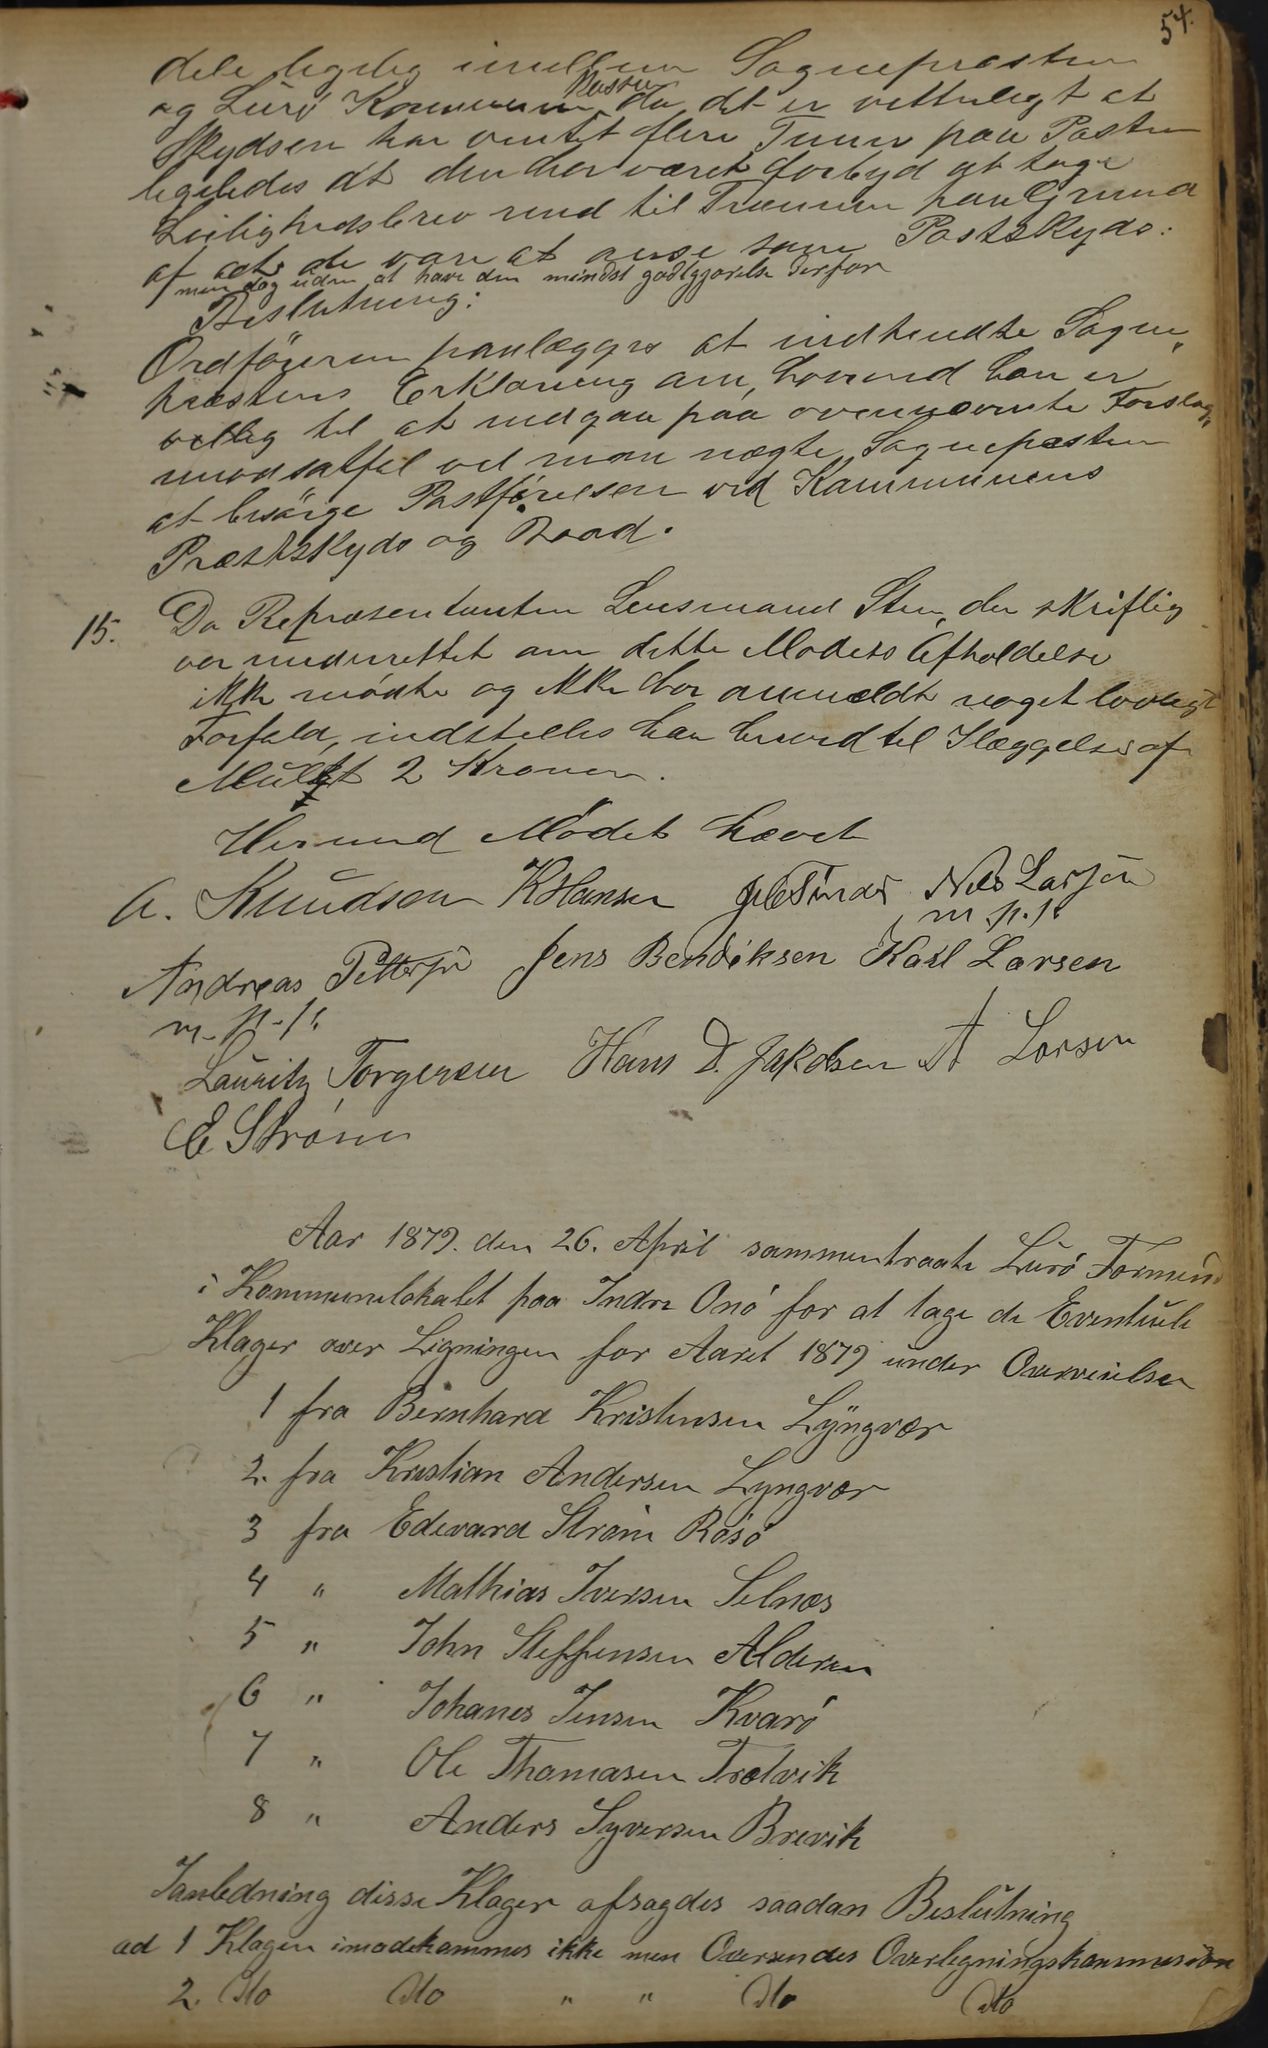 54.
dele ligelig imellem Sognepræsten
og Lurö Kommune Kasse da det er vitterligt at
Skydsen har ventet flere Timer paa Posten
ligeledes at den har været forbyd at tage
Leilighedsbrev med til Trænen paa Grund
af at de var at anse som Postskyds:
men dog uden at have den mindst godtgjørelse derfor
Beslutning:
Ordföreren paalægges at indhendte Sogne„
præstens Erklæring om, hvorvid han er
villig til at indgaa paa ovennævnte Forslag,
modsatfal vil man nægte Sognepræsten
at besörge Postförelsen ved Kommunens
Præstskyds og Baad.
15. Da Repræsentanten Lensmand Sten, der skriftlig
var underrettet om dette Mödets Afholdelse
ikke mödte og ikke har anmeldt noget lovligt
Forfald, indstilles han herved til Ilæggelse af
Mulkt 2 Kroner.
Hermed Mödet hævet
A. Knudsen K Hansen Nils Larsen
m.p.p.
Andreas Pettersen Jens Bendiksen Karl Larsen
m.p.p.
Lauritz Torgersen Hans D. Jakobsen A Larsen
E Ström
Aar 1879. den 26. April sammentraate Lurö Formend
i Kommunelokalet paa Indre Onö for at tage de Eventuele
Klager over Ligningen for Aaret 1879 under Overveielse
1 fra Bernhard Kristensen Lyngvær
2. fra Kristian Andersen Lyngvær
3 fra Edevard Ström Rösö
4 " Mathias Iversen Selnæs
5 " John Steffensen Alderen
6 " Johanes Jensen Kvarö
7 " Ole Thomasen Trælvik
8 " Anders Syversen Brevik
Ianledning disse Klager afsagdes saadan Beslutning
ad 1 Klagen imødekommes ikke men Oversendes Overligningskommission
2. Do Do " " Do Do